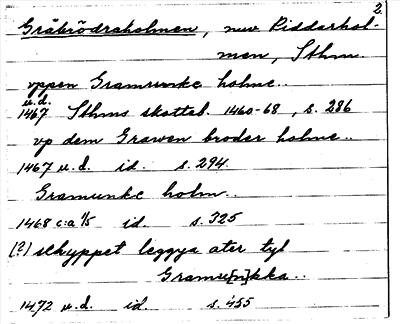 2.
Gråbrödraholmen, nuv. Riddarhol-
men, Sthm
vppen Gramunke holme..
u.d.
1467 Sthms skatteb. 1460-68, s. 286
vp dem Grawen broder holme..
1467 u.d. id. s. 294.
Gramunke holm..
1468 c:a 1/5 id. s. 325
(?) schyppet leggya ater tyl
Gramu[n]kka..
1472 u.d. id. s. 455